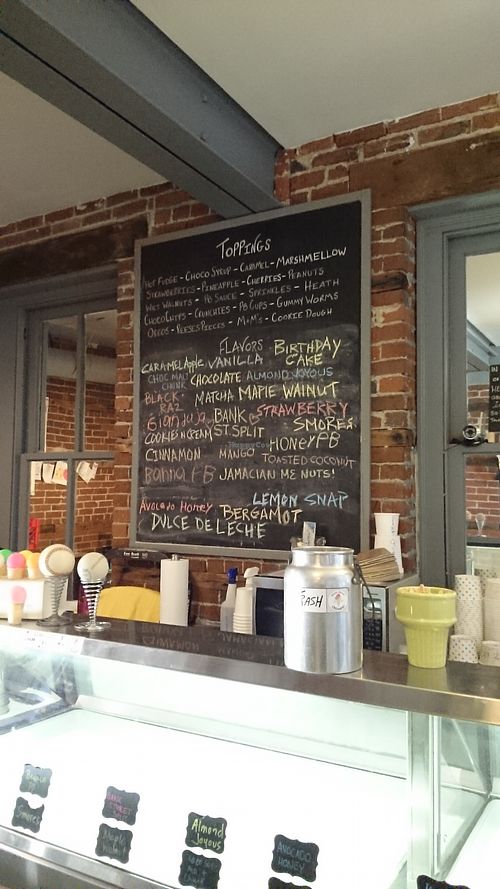 TOPPINGS
HOT FUDGE - CHOCO SYRUP - CARAMEL - MARSHMELLOW
STRAWBERRIES - PINEAPPLE - CHERRIES - PEANUTS
WET WALNUTS - PB SAUCE - SPRINKLES - HEATH
CHOCO CHIPS - CRUNCHIES - PB CUPS - GUMMY WORMS
OREOS - REESES PIECES - M&M'S - COOKIE DOUGH
FLAVORS
CARAMEL Apple VANILLA BIRTHDAY CAKE
CHOC MALT CHUNK CHOCOLATE ALMOND JOYOUS
BLACK RAZ MATCHA MAPLE WALNUT
Gianduja BANK ST. SPLIT STRAWBERRY
COOKIES N CREAM SMORES
CINNAMON MANGO HONEY PB
BANNA PB TOASTED COCONUT
JAMACIAN ME NUTS!
LEMON SNAP
Avocado HONEY BERGAMOT
DULCE DE LECHE
TRASH
Smores
Almond Joyous
AVOCADO HONEY